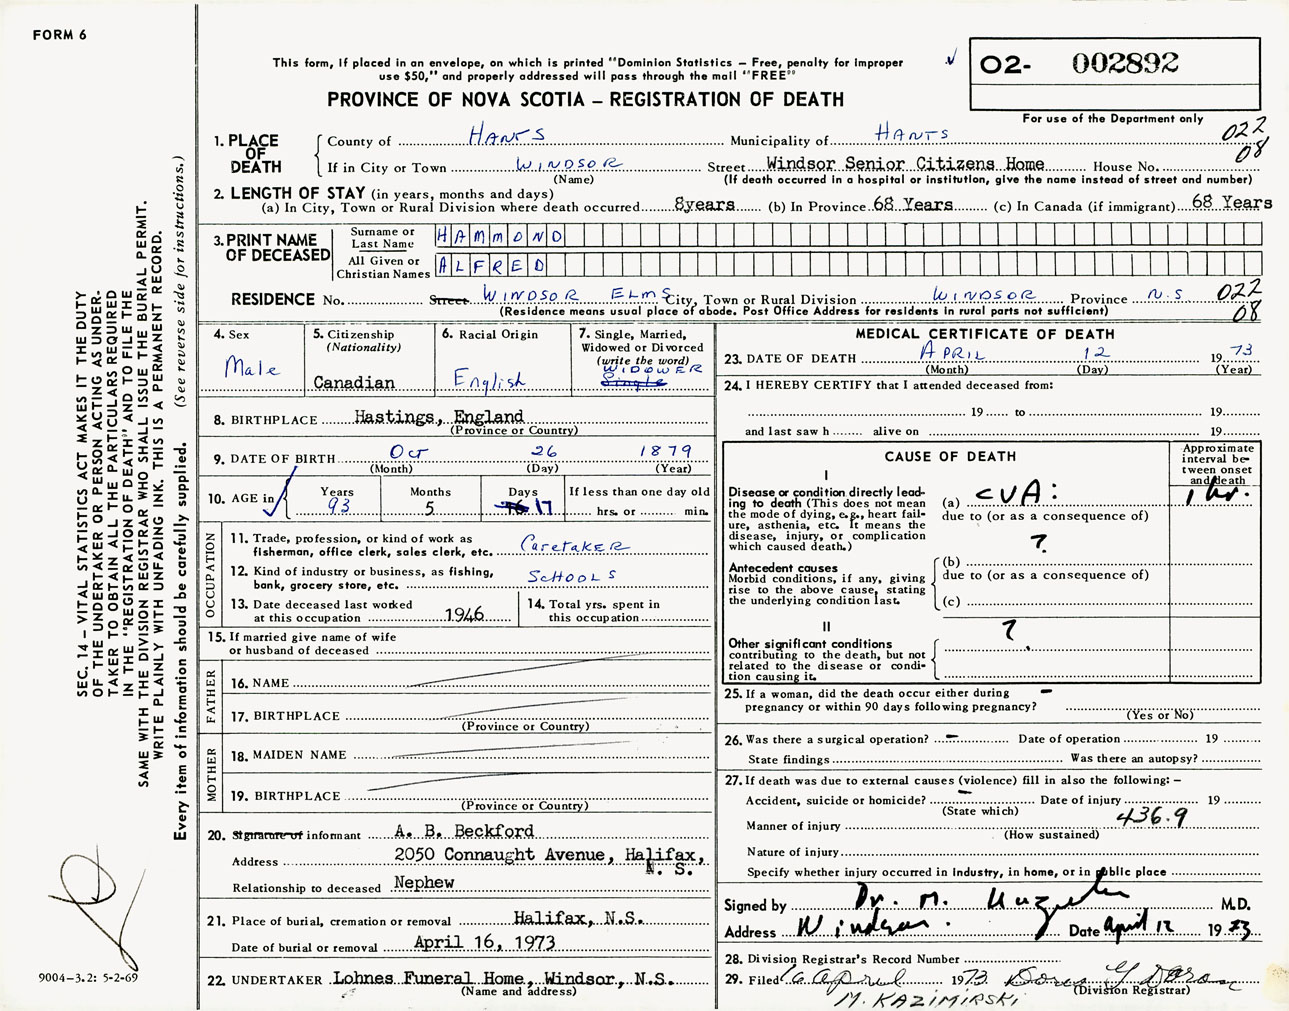 FORM 6
This form, if placed in an envelope, on which is printed "Dominion Statistics – Free, penalty for improper
use $50," and properly addressed will pass through the mail "FREE"
PROVINCE OF NOVA SCOTIA – REGISTRATION OF DEATH
O2- 002892
For use of the Department only
022
08
1. PLACE OF DEATH
County of HANTS Municipality of HANTS
If in City or Town WINDSOR Street Windsor Senior Citizens Home House No.
(Name) (If death occurred in a hospital or institution, give the name instead of street and number)
2. LENGTH OF STAY (in years, months and days)
(a) In City, Town or Rural Division where death occurred 8years (b) In Province 68 Years (c) In Canada (if immigrant) 68 Years
3. PRINT NAME OF DECEASED
Surname or Last Name HAMMOND
All Given or Christian Names ALFRED
RESIDENCE No. Street WINDSOR ELMS City, Town or Rural Division WINDSOR Province N.S 022
(Residence means usual place of abode. Post Office Address for residents in rural parts not sufficient) 08
4. Sex
Male
5. Citizenship
(Nationality)
Canadian
6. Racial Origin
English
7. Single, Married,
Widowed or Divorced
(write the word)
WIDOWER
Single
8. BIRTHPLACE Hastings, England
(Province or Country)
9. DATE OF BIRTH Oct 26 1879
(Month) (Day) (Year)
10. AGE in
Years Months Days If less than one day old
93 5 16 17 hrs. or min.
OCCUPATION
11. Trade, profession, or kind of work as
fisherman, office clerk, sales clerk, etc. Caretaker
12. Kind of industry or business, as fishing,
bank, grocery store, etc. SCHOOLS
13. Date deceased last worked
at this occupation 1946
14. Total yrs. spent in
this occupation
15. If married give name of wife
or husband of deceased
FATHER
16. NAME
17. BIRTHPLACE
(Province or Country)
MOTHER
18. MAIDEN NAME
19. BIRTHPLACE
(Province or Country)
20. Signature of informant A. B. Beckford
Address 2050 Connaught Avenue, Halifax,
N. S.
Relationship to deceased Nephew
21. Place of burial, cremation or removal Halifax, N.S.
Date of burial or removal April 16, 1973
22. UNDERTAKER Lohnes Funeral Home, Windsor, N.S.
(Name and address)
MEDICAL CERTIFICATE OF DEATH
23. DATE OF DEATH APRIL 12 19 73
(Month) (Day) (Year)
24. I HEREBY CERTIFY that I attended deceased from:
19 to 19
and last saw h alive on 19
CAUSE OF DEATH
Approximate
interval be-
tween onset
and death
I
Disease or condition directly lead-
ing to death (This does not mean
the mode of dying, e.g., heart fail-
ure, asthenia, etc. It means the
disease, injury, or complication
which caused death.)
(a) CVA: 1 hr.
due to (or as a consequence of)
?
Antecedent causes
Morbid conditions, if any, giving
rise to the above cause, stating
the underlying condition last.
(b)
due to (or as a consequence of)
(c)
II
Other significant conditions
contributing to the death, but not
related to the disease or condi-
tion causing it.
?
25. If a woman, did the death occur either during
pregnancy or within 90 days following pregnancy? –
(Yes or No)
26. Was there a surgical operation? – Date of operation 19
State findings Was there an autopsy?
27. If death was due to external causes (violence) fill in also the following: –
Accident, suicide or homicide? – Date of injury 19
(State which)
436.9
Manner of injury
(How sustained)
Nature of injury
Specify whether injury occurred in Industry, in home, or in public place
Signed by Dr. M. M.D.
Address Windsor. Date April 12 19 73
28. Division Registrar's Record Number
29. Filed 16 April 1973
(Division Registrar)
M. KAZIMIRSKI
SEC. 14 – VITAL STATISTICS ACT MAKES IT THE DUTY
OF THE UNDERTAKER OR PERSON ACTING AS UNDER-
TAKER TO OBTAIN ALL THE PARTICULARS REQUIRED
IN THE "REGISTRATION OF DEATH" AND TO FILE THE
SAME WITH THE DIVISION REGISTRAR WHO SHALL ISSUE THE BURIAL PERMIT.
WRITE PLAINLY WITH UNFADING INK. THIS IS A PERMANENT RECORD.
Every item of information should be carefully supplied. (See reverse side for instructions.)
9004–3.2: 5-2-69